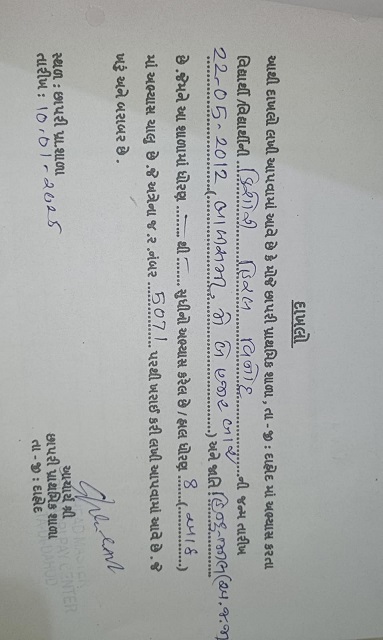 દાખલો
આથી દાખલો લખી આપવામાં આવે છે કે મોજે છાપરી પ્રાથમિક શાળા, તા - જી : દાહોદ માં અભ્યાસ કરતા
વિદ્યાર્થી/વિદ્યાર્થીની કિશોરી હિરલ વિનોદ ની જન્મ તારીખ
22-05-2012 (બાવીસમી, મે બે હજાર બાર) અને જાતિ હિન્દુ-ભીલ (અ.જ.જા
છે. જેમને આ શાળામાં ધોરણ — થી — સુધીનો અભ્યાસ કરેલ છે / હાલ ધોરણ 8 (આઠ)
માં અભ્યાસ ચાલુ છે. જે અત્રેના જી.ર.નંબર 5071 પરથી ખરાઈ કરી લખી આપવામાં આવે છે. જે
ખરું અને બરાબર છે.
સ્થળ : છાપરી પ્રા.શાળા
તારીખ : 10-01-2025
આચાર્ય શ્રી
છાપરી પ્રાથમિક શાળા
તા - જી : દાહોદ